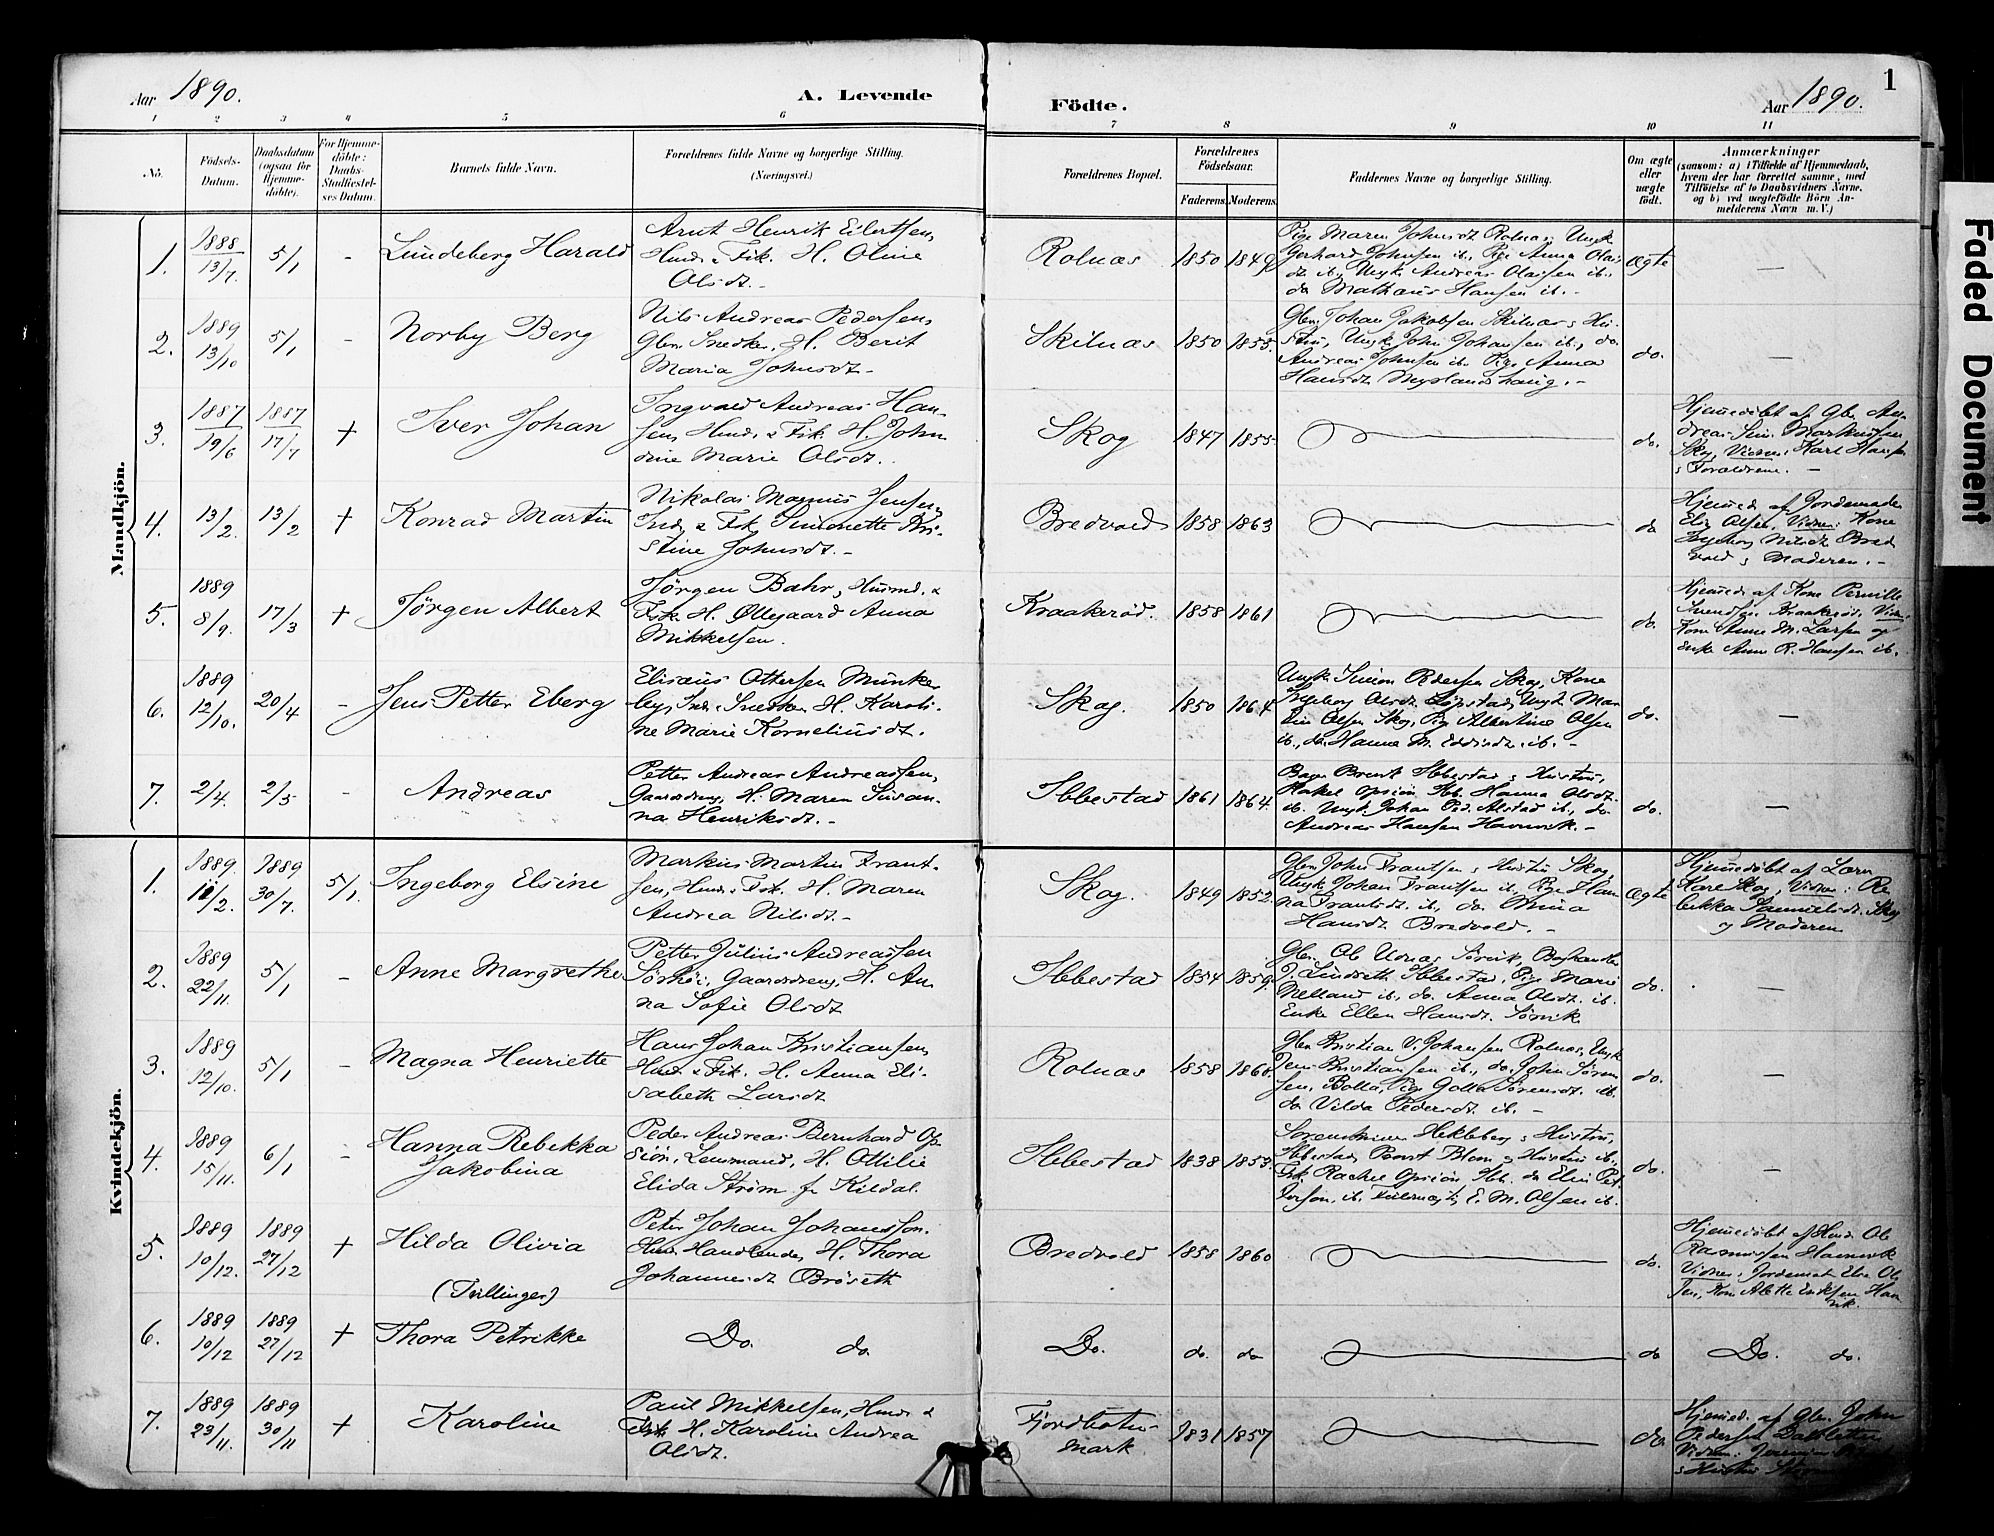 1
Aar 1890.
A. Levende
Födte.
Aar 1890.
1 2 3 4 5 6 7 8 9 10 11
No.
Födsels-
Datum.
Daabsdatum
(ogsaa for
Hjemme-
döbte).
For Hjemme-
döbte:
Daabs-
Stadfæstel-
ses Datum.
Barnets fulde Navn.
Forældrenes fulde Navne og borgerlige Stilling.
(Næringsvei.)
Forældrenes Bopæl.
Forældrenes
Födselsaar.
Faderens. Moderens.
Faddernes Navne og borgerlige Stilling.
Om ægte
eller
uægte
födt.
Anmærkninger
(saasom: a) i Tilfælde af Hjemmedaab,
hvem der har forrettet samme, med
Tilföielse af to Daabsvidners Navne,
og b) ved uægtefödte Börn An-
melderens Navn m. V.)
Mandkjön.
1. 1888 13/7. 5/1 - Lundeberg Harald
Arnt Henrik Eilertsen,
Husm. & Fisk. H. Oline
Olsdt.-
Rolnæs 1850 1849
Pige Maren Johnsdt. Rolnæs, Ungk
Gerhard Johnsen ib., Pige Anna Olai-
dt. ib., Ungk. Andreas Olaisen ib.,
do Mathæus Hansen ib. -
Ægte
-
2. 1889 13/10 5/1 - Norby Berg
Nils Andreas Pedersen,
Gbr. Snedker, H. Berit
Maria Johnsdt-
Skilnæs 1850 1855.
Gbr. Johan Jakobsen Skilnæs & Hu-
stru, Ungk. John Johansen ib., do.
Andreas Johnsen ib. Pige Anna
Hansdt.
do.
-
3. 1887 19/6 1887 17/7 + Iver Johan
Ingvald Andreas Han-
sen, Husm. & Fisk. H. John
dine Marie Olsdt..
Skog 1847 1855
do.
Hjemmedöbt af Gbr. An-
dreas
Skog, Vidner: Karl Hansen
& Forældrene. -
4. 13/2. 13/2 + Konrad Martin
Nikolai Magnus Jensen,
Ind. & Fisk. Simonette Kri-
stine Johnsdt.-
Bredvold 1858 1863
do
Hjemmed. af Jordemoder
Olsen, Vidner: Kone
Ingeborg Nilsdt. Bred
vold & Moderen. -
5. 1889 8/9. 17/3 + Jørgen Albert
Jørgen Bahr, Husmd. &
Fisk. H. Øllegaard Anna
Mikkelsen.
Kraakerød. 1858 1861
do.
Hjemmed. af Kone Pernille
Kone Anne M. Larsen og
Enke Anne R. Hansen ib.
6. 1889 12/10. 20/4 - Jens Petter Eberg
Elisæus Ottersen Munke
by, Ind. Snedker H. Karoli-
ne Marie Korneliusdt.
Skog. 1850 1864.
Ungk. Simon Pedersen Skog, Kone
Ingeborg Olsdt. Løpstad, Ungk. Mar-
tin Olsen Skog, Pige Albertine Olsen
ib., do. Hanna M. ib. -
do.
-
7. 2/4. 2/5 - Andreas
Petter Andreas Andreassen,
Gaardbr. H. Maren Susan-
na Henriksdt.-
Ibbestad 1861 1864.
Ibbestad & Hustru,
Rakel Opsiön Ibb. Hanna Olsdt.
ib. Ungk. Johan Ped. Alstad ib., do
Andreas Hansen Havnvik. -
do.
-
Kvindekjön.
1. 1889. 11/2. 1889 30/7. 5/1. Ingeborg Elsine
Markus Martin Frant-
sen, Husm. & Fisk. H. Maren
Andrea Nilsdt.-
Skog. 1849 1852.
Gbr. John Frantsen & Hustru Skog,
Ungk Johan Frantsen ib., Pige Han-
na Frantsdt. ib., do Anna
Hansdt Bredvold. -
Ægte
Hjemmedöbt af Lærer
Kare Skog, Vidner: Re
bekka Samuelsdt. Skog
og Moderen
2. 1889 22/11. 5/1 - Anne Margrethe
Petter Julius Andreassen
Sørhöi, Gaardbr. H. An-
na Sofie Olsdt
Ibbestad 1854 1859.
Gbr. Ole Udnæs Sørvik, Boghandler
J. Lindseth Ibbestad, Pige Marie
Melland ib., do. Anna Olsdt. ib.
Enke Ellen Hansdt. Sørvik
do.
-
3. 1889 12/10. 5/1 - Magna Henriette
Hans Johan Kristiansen
Husm. & Fisk. H. Anna Eli-
sabeth Larsdt
Rolnæs 1858 1868.
Gbr. Kristian V. Johansen Rolnæs, Ungk
Jens Kristiansen ib., do. John Søren-
sen, Bolla, Pige Golla Sørensdt. ib.
do Vilda Pedersdt ib. -
do.
-
4. 1889 15/11. 6/1 - Hanna Rebekka
Jakobina
Peder Andreas Bernhard Op-
siön, Lensmand, H. Ottilie
Elida Strøm f. Kildal.
Ibbestad 1838 1853.
Sorenskriver Hekleberg & Hustru,
Ibbestad, Provst Blom & Hustru ib.,
Frk. Rachel Opsiön, Ibb. do Elin Pet-
tersen, ib. E. M. Olsen ib.
do.
-
5. 1889 10/12. 1889 27/12 + Hilda Olivia
(Tvillinger)
Peter Johan Johanssen.
Husm. Handlende, H. Thora
Johannesdt Brøseth
Bredvold 1858 1860
do.
Hjemmedöbt af Husm. Ole
Rasmussen Havnvik
Vidner: Jordemoder Ol-
sen, Kone Alette Eriksen Havn-
vik.
6. 1889 10/12 1889 27/12 + Thora Petrikke
Do. do
Do. do. do
do
Do. do.
7. 1889 23/11. 1889 30/11 + Karoline
Paul Mikkelsen, Husm. &
Fisk. H. Karoline Andrea
Olsdt.
Fjordbotn-
mark 1831 1857
do
Hjemmed. af Gbr. John
Pedersen
Vidner:
& Hustru
Faded Document